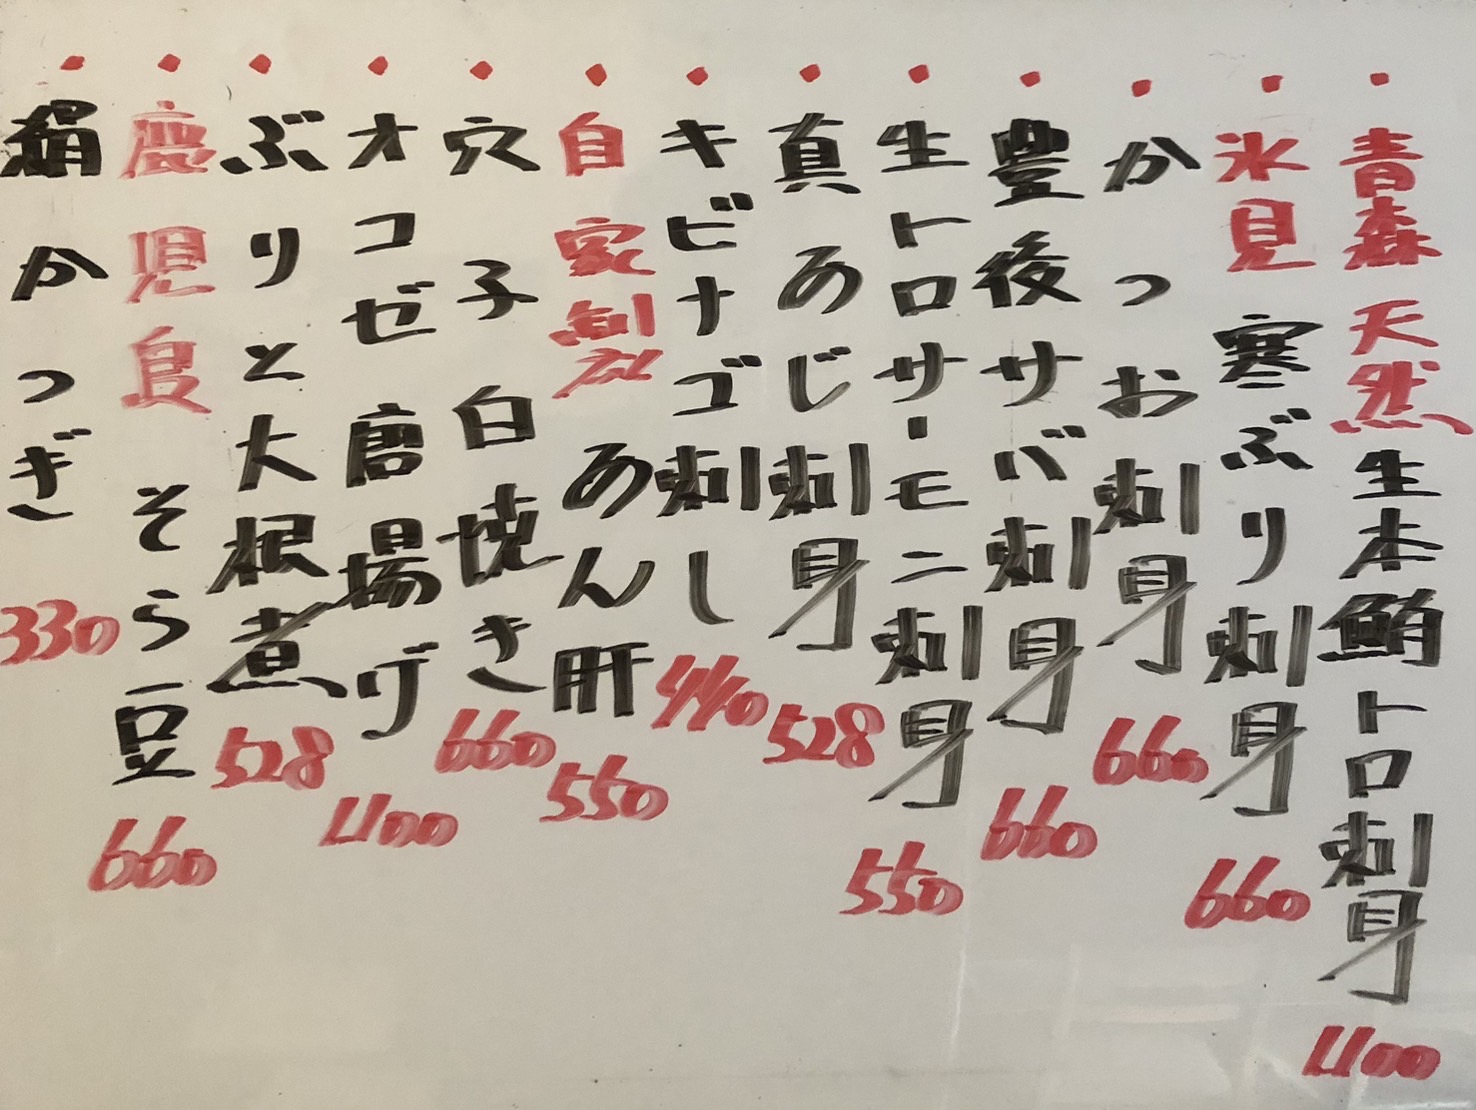 ・青森天然生本鮪トロ刺身 1100
・氷見寒ぶり刺身 660
・かつお刺身 660
・豊後サバ刺身 660
・生トロサーモン刺身 550
・真あじ刺身 528
・キビナゴ刺し 440
・自家製あん肝 550
・穴子白焼き 660
・オコゼ唐揚げ 1100
・ぶりと大根煮 528
・鹿児島そら豆 660
・絹かつぎ 330